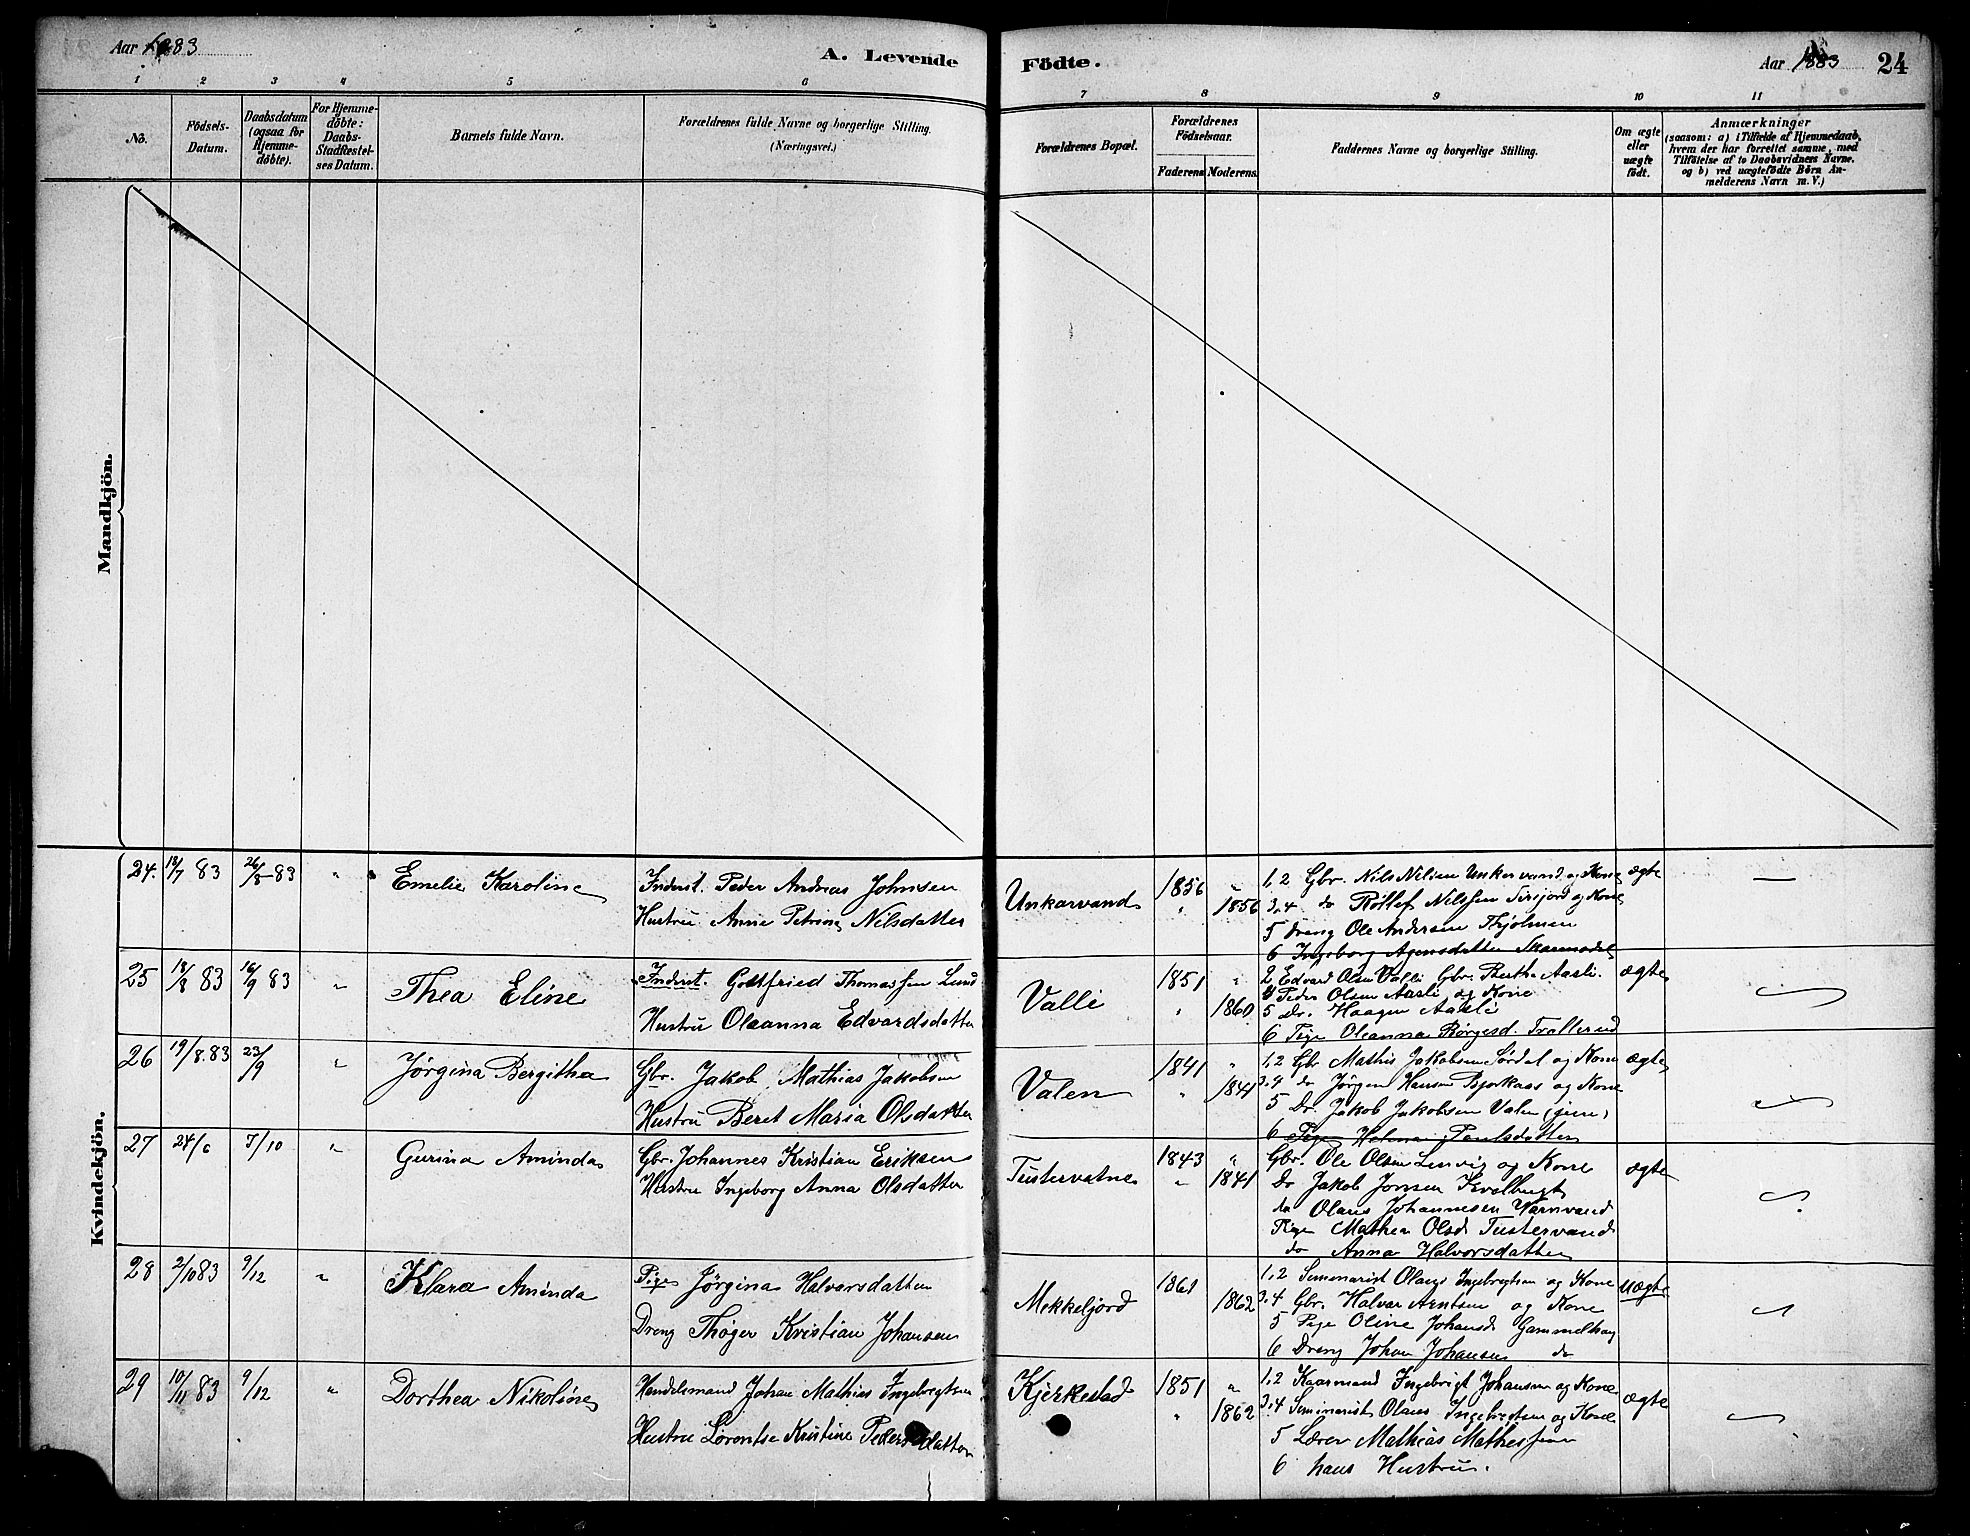 Aar 1883
A. Levende Födte.
Aar 1883 24
1 2 3 4 5 6 7 8 9 10 11
No.
Födsels-
Datum.
Daabsdatum
(ogsaa for
Hjemme-
döbte).
For Hjemme-
döbte:
Daabs-
Stadfæstel-
ses Datum.
Barnets fulde Navn.
Forældrenes fulde Navne og borgerlige Stilling.
(Næringsvei.)
Forældrenes Bopæl.
Forældrenes
Födselsaar.
Faderens. Moderens.
Faddernes Navne og borgerlige Stilling.
Om ægte
eller
uægte
födt.
Anmærkninger
(saasom: a) i Tilfælde af Hjemmedaab,
hvem der har forrettet samme, med
Tilföielse af to Daabsvidners Navne.
og b) ved uægtefödte Börn An-
melderens Navn m. V.)
Mandkjön.
Kvindekjön.
24. 18/7 83 26/8 83 " Emelie Karoline
Inderst. Peder Andreas Johnsen
Hustru Anne Petrine Nilsdatter
Unkarvand
1856 "
" 1856
1,2 Gbr. Nils Nilsen Unkervand og Kone
3,4 do Rollef Nilssen Sirijord og Kone
5 dreng Ole Andersen
6 Ingeborg Agensdatter Skarmodal
ægte
—
25 18/8 83 16/9 83 " Thea Eline
Inderst. Gottfried Thomassen Lund
Hustru Oleanna Edvardsdatter
Valli
1851 "
" 1860
2 Edvard Olsen Valli Gbr. Berthe Aasli.
4 Peder Olsen Aasli og Kone
5 Dr. Haagen Aasli
6 Pige Oleanna Børgesd. Trallerud
ægte
26 19/8.83 23/9 " Jørgina Bergitha
Gbr. Jakob Mathias Jakobsen
Hustru Beret Maria Olsdatter
Valen
1841 "
" 1841
1,2 Gbr Mathis Jakobsen Sørdal og Kone
3,4 do Jørgen Hansen Bjorkaas og Kone
5 Dr. Jakob Jakobsen Valen
6 Pige Helena Paulsdatter
ægte
27 24/6 7/10 " Gurina Aminda
Gbr. Johannes Kristian Eriksen
Hustru Ingeborg Anna Olsdatter
Tustervatne
1843 "
" 1841
Gbr. Ole Olsen Lenvig og Kone
Do Jakob Jonsen Kvalbugt
do Olaus Johannesen Varnvand
Pige Mathea Olsd Tustervand
do Anna Halvorsdatter
ægte
28 2/10 83 9/12 " Klara Aminda
Pige Jørgina Halvorsdatter
Dreng Thøger Kristian Johansen
Mekkeljord
1861
1862
1,2 Seminarist Olaus Ingebrigtsen og Kone
3,4 Gbr. Halvor Arntsen og Kone
5 Pige Oline Johansd Gammelhaug
6 Dreng Johan Johansen do
uægte
29 10/11 83 9/12 " Dorthea Nikoline
Handelsmand Johan Mathias Ingebregtsen
Hustru Lorentse Kristine Pedersdatter
Kjerkestad
1851 "
" 1862
1,2 Kaarmand Ingebrigt Johansen og Kone
3,4 Seminarist Olaus Ingebregtsen og Kone
5 Lærer Mathias Mathiessen
6 hans Hustru.
ægte